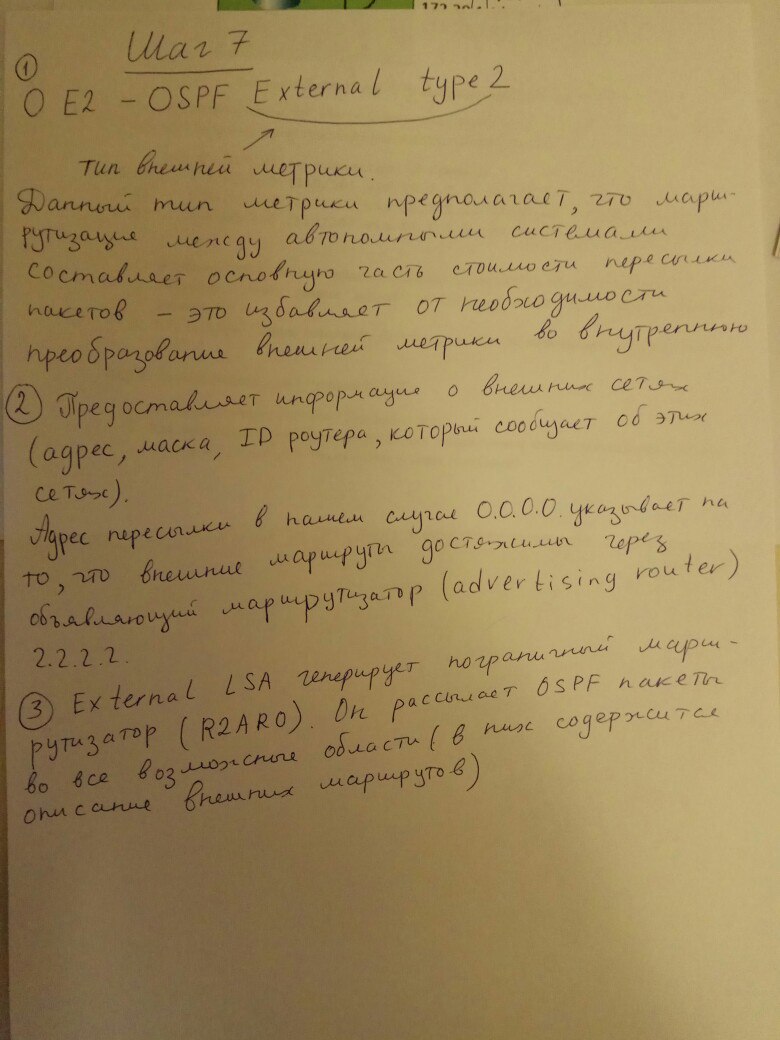 172.20
Шаг 7
①
O E2 – OSPF External type 2
тип внешней метрики.
Данный тип метрики предполагает, что марш-
рутизация между автономными системами
составляет основную часть стоимости пересылки
пакетов – это избавляет от необходимости
преобразование внешней метрики во внутреннюю
② Предоставляет информацию о внешних сетях
(адрес, маска, ID роутера, который сообщает об этих
сетях).
Адрес пересылки в нашем случае 0.0.0.0. указывает на
то, что внешние маршруты достяжимы через
объявляющий маршрутизатор (advertising router)
2.2.2.2.
③ External LSA генерирует пограничный марш-
рутизатор (R2ARO). Он рассылает OSPF пакеты
во все возможные области (в них содержится
описание внешних маршрутов)